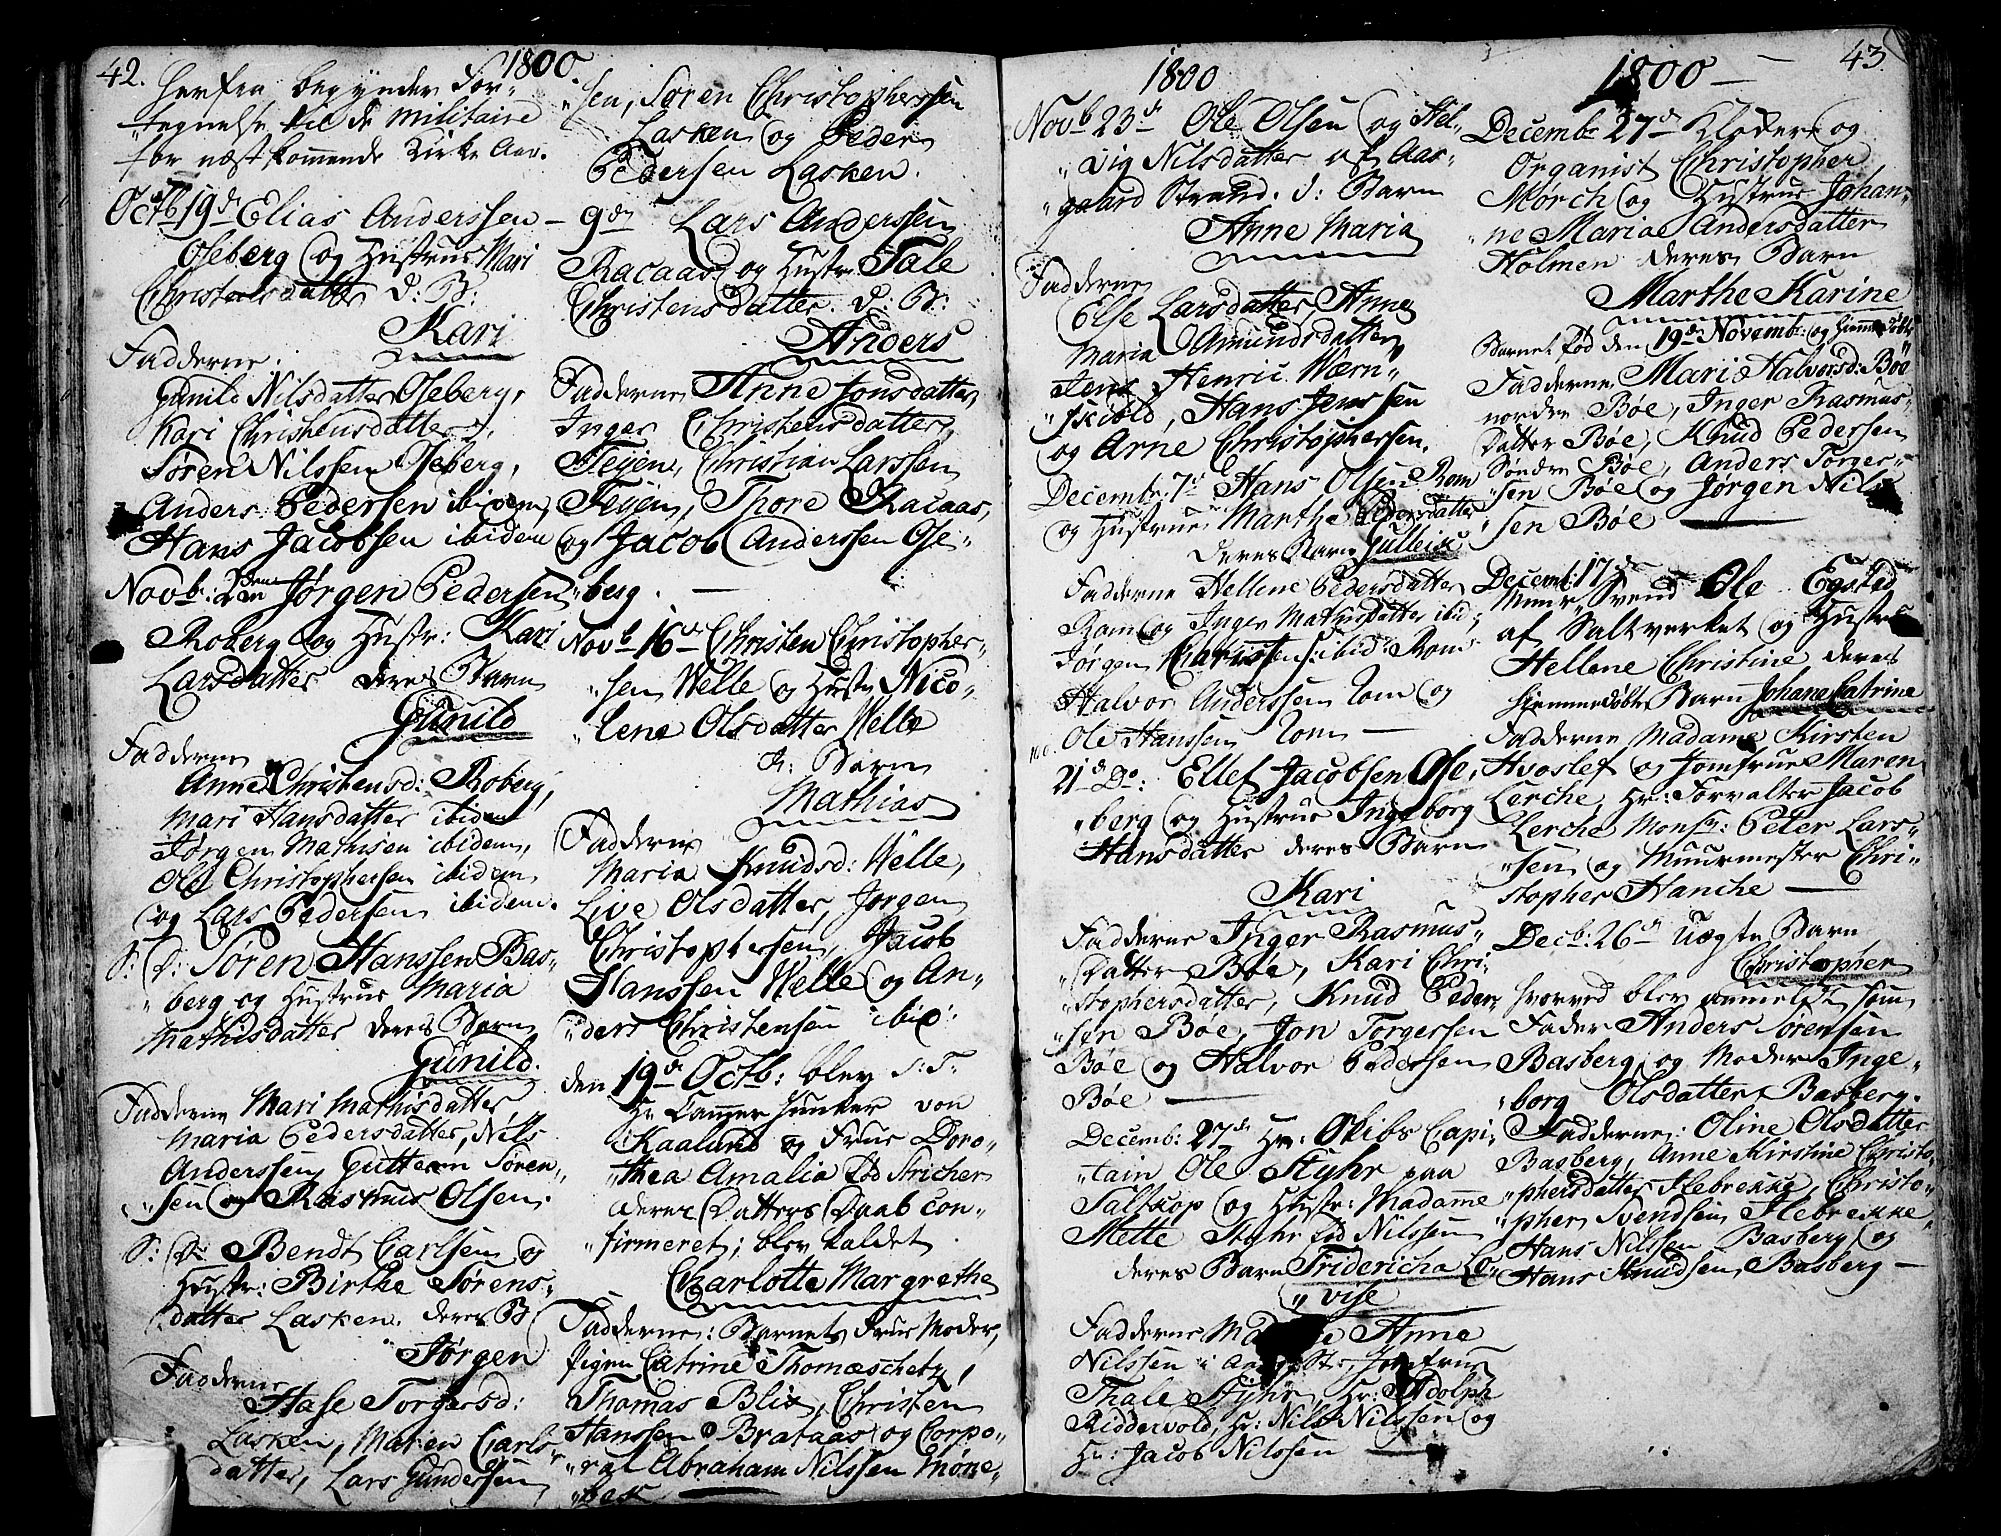 42.
1800
Herfra begynder For-
tegnelse til de Militaire
for næstkommende Kirke Aar.
Octb 19de Elias Anderssen
Oseberg og Hustrue Mari
Christensdatter d: B:
Kari
Fadderne
Gunild Nilsdatter Oseberg,
Kari Christensdatter,
Søren Nilssen Oseberg,
Anders Pedersen ibidem,
Hans Jacobsen ibidem
Novb: 2den Jørgen Pedersen
Roberg og Hustr: Kari
Larsdatter deres Barn
Gunild
Fadderne
Anne Christensd: Roberg,
Mari Hansdatter ibidem
Jørgen Mathisen ibidem,
Ole Christophersen ibidem
og Lars Pedersen ibidem.
S: D: Søren Hanssen Bas-
berg og Hustrue Maria
Mathisdatter deres Barn
Gunild.
Fadderne Mari Mathisdatter
Maria Pedersdatter, Nils
Anderssen, Guttorm Søren-
sen og Rasmus Olsen.
S: D: Bendt Carlsen og
Hustr: Birthe Sørens-
datter Lasken. deres B
Jørgen
Fadderne
Aase Torgersd:
Lasken, Maren Carls-
datter, Lars Gundersen
sen, Søren Christophersen
Lasken og Peder
Pedersen Lasken.
9de Lars Anderssen
Racaas og Hustr: Tale
Christensdatter. d: B:
Anders
Fadderne Anne Jonsdatter
Inger Christensdatter
Teijen, Christian Larssen
Teijen, Thore Racaas,
og Jacob Anderssen Ose-
berg.
Novb 16de Christen Christopher-
sen Welle og Hustr Nico-
lene Olsdatter Welle
d: Barn
Mathias
Fadderne
Maria Knudsd: Welle,
Live Olsdatter, Jørgen
Christophersen, Jacob
Hanssen Welle og An-
ders Christensen ibid:
den 19de Octb: blev S: T:
Hr Cammer Junker von
Kaalund og Frue Doro-
thea Amalia fød Stricher
deres Datters Daab con-
firmeret; blev kaldet
Charlotte Margrethe
Fadderne: Barnets Frue Moder,
Pigen Catrine Thomæschetz,
Thomas Blix, Christen
Hanssen Brataas og Corpo-
ral Abraham Nilssen Møne-
bek
1800
Novb 23de Ole Olsen og Hel-
vig Nilsdatter af Aas-
gaard Strand. d: Barn
Anne Maria
Fadderne
Else Larsdatter, Anne
Maria Amundsdatter
Jens Henric Wærn-
skiold, Hans Jenssen
og Arne Christophersen.
Decembr: 7de Hans Olsen Rom
og Hustrue Marthe Pedersdatter
deres Barn Gulleik
Fadderne Hellene Pedersdatter
Rom og Inger Mathisdatter ibid:
Jørgen Christens: ibid: Rom
Halvor Anderssen Rom og
Ole Hanssen Rom
21de Do: Ellef Jacobsen Ose-
berg og Hustrue Ingeborg
Hansdatter deres Barn
Kari
Fadderne Inger Rasmus-
Datter Bøe, Kari Chri-
stophersdatter, Knud Peder
sen Bøe, Jon Torgersen
Bøe og Halvor Pedersen
Bøe
Decemb: 27de Hr: Skibs Capi-
tain Ole Styhr paa
Saltkop og Hustr: Madame
Mette Styhr fød Nilssen
deres Barn Fridericha Lo-
vise
Fadderne Anne
Nilssen i Jomfrue
Thale Styhr, Hr: Adolph
Riddervold, Hr: Nils Nilssen og
Hr: Jacob Nilssen
1800
43
Decembr 27de Klokker og
Organist Christopher
Mørch og Hustrue Johan-
ne Maria Andersdatter
Holmen deres Barn
Marthe Karine
Barnet fød den 19de Novemb: og hjemmedøbt
Fadderne Mari Halvorsd: Bøe
nordre Bøe, Inger Rasmus-
Datter Bøe, Knud Pedersen
Søndre Bøe, Anders Torger-
sen Bøe og Jørgen Nils
sen Bøe
Decemb: 17de
Muur Svend Ole Egsted
af Saltverket og Hustrue
Hellene Christine deres
hjemmedøbte Barn Johane Catrine
Fadderne Madame Kirsten
Hvoslef og Jomfrue Maren
Lerche, Hr: Forvalter Jacob
Lerche Monsr: Peter Lars-
sen og Muurmester Chri-
stopher Hanche
Decb: 26de Uægte Barn
Christopher
hvorved blev anmeldt som
Fader Anders Sørensen
Basberg og Moder Inge-
borg Olsdatter Basberg.
Fadderne: Oline Olsdatter
Basberg, Anne Kirstine Christo-
phersdatter Slebrekke, Christo-
pher Svendsen Slebrekke
Hans Nilssen Basberg og
Hans Knudsen Basberg